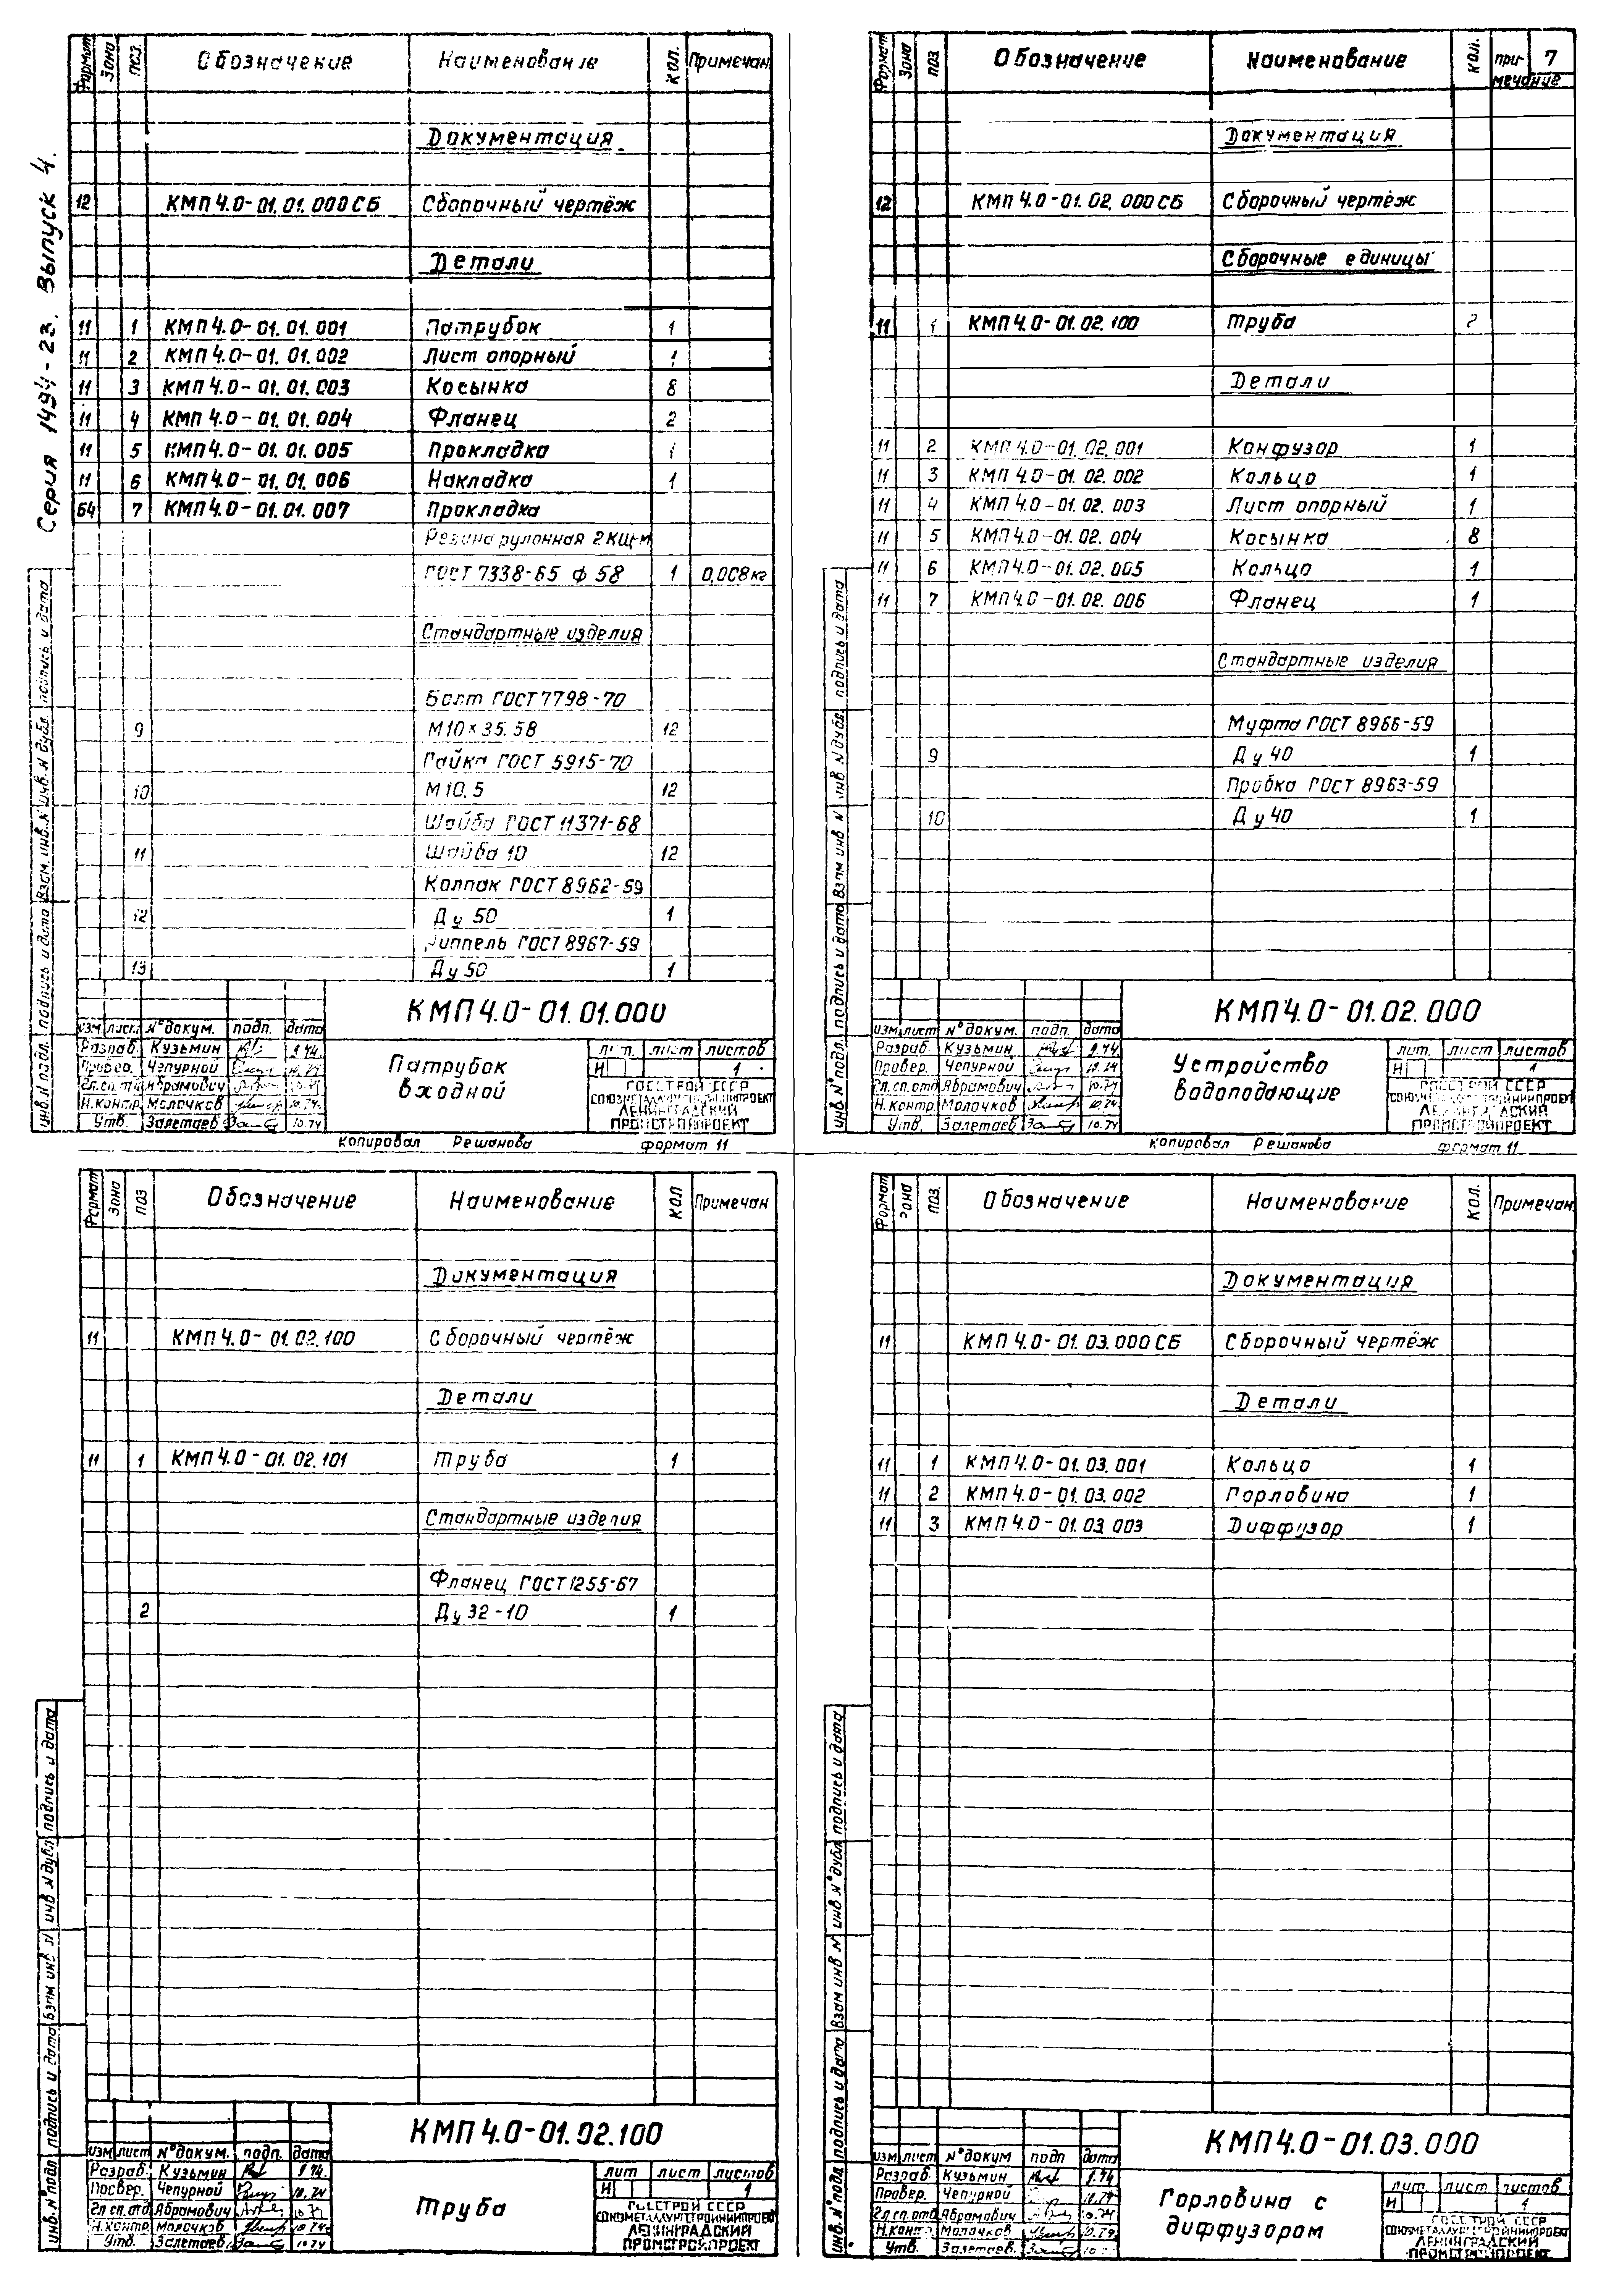 Серия 1494-23. Выпуск 4.
Формат Зона поз. Обозначение Наименование кол. Примечан.
Документация
12 КМП4.0-01.01.000СБ Сборочный чертёж
Детали
11 1 КМП4.0-01.01.001 Патрубок 1
11 2 КМП4.0-01.01.002 Лист опорный 1
11 3 КМП4.0-01.01.003 Косынка 8
11 4 КМП4.0-01.01.004 Фланец 2
11 5 КМП4.0-01.01.005 Прокладка 1
11 6 КМП4.0-01.01.006 Накладка 1
64 7 КМП4.0-01.01.007 Прокладка
Резина рулонная 2КЩ-м
ГОСТ 7338-65 ф 58 1 0,008кг
Стандартные изделия
Болт ГОСТ 7798-70
9 М10×35.58 12
Гайка ГОСТ 5915-70
10 М10.5 12
Шайба ГОСТ 11371-68
11 Шайба 10 12
Колпак ГОСТ 8962-59
12 Ду 50 1
Ниппель ГОСТ 8967-59
13 Ду 50 1
инв.N подл. подпись и дата Взам.инв.N инв.N дубл. подпись и дата
КМП4.0-01.01.000
изм лист N°докум. подп. дата
Разраб. Кузьмин 9.74.
Провер. Чепурной 10.74
Гл.сп.отд Абрамович 10.74
Н.контр. Молочков 10.74.
Утв. Залетаев 10.74
Патрубок
входной
лит. лист листов
И 1
ГОССТРОЙ СССР
СОЮЗМЕТАЛЛУРГСТРОЙНИИПРОЕКТ
ЛЕНИНГРАДСКИЙ
ПРОМСТРОЙПРОЕКТ
копировал Решанова формат 11
Формат Зона поз Обозначение Наименование кол. При-мечание 7
Документация
12 КМП4.0-01.02.000СБ Сборочный чертёж
Сборочные единицы
11 1 КМП4.0-01.02.100 Труба 2
Детали
11 2 КМП4.0-01.02.001 Конфузор 1
11 3 КМП4.0-01.02.002 Кольцо 1
11 4 КМП4.0-01.02.003 Лист опорный 1
11 5 КМП4.0-01.02.004 Косынка 8
11 6 КМП4.0-01.02.005 Кольцо 1
11 7 КМП4.0-01.02.006 Фланец 1
Стандартные изделия
Муфта ГОСТ 8966-59
9 Ду 40 1
Пробка ГОСТ 8963-59
10 Ду 40 1
инв.N°подл. подпись и дата Взам инв N инв N дубл. подпись и дата
КМП4.0-01.02.000
изм лист N°докум. подп. дата
Разраб Кузьмин 9.74.
Провер. Чепурной 10.74
Гл.сп.отд Абрамович 10.74
Н.контр. Молочков 10.74
Утв. Залетаев 10.74
Устройство
водоподающие
лит. лист листов
И 1
ГОССТРОЙ СССР
СОЮЗМЕТАЛЛУРГСТРОЙНИИПРОЕКТ
ЛЕНИНГРАДСКИЙ
ПРОМСТРОЙПРОЕКТ
копировал Решанова формат 11
Формат Зона поз Обозначение Наименование кол Примечан
Документация
11 КМП4.0-01.02.100 Сборочный чертёж
Детали
11 1 КМП4.0-01.02.101 Труба 1
Стандартные изделия
Фланец ГОСТ 1255-67
2 Ду 32-10 1
инв.N°подл подпись и дата Взам инв N инв N дубл подпись и дата
КМП4.0-01.02.100
изм лист N°докум. подп. дата
Разраб. Кузьмин 9.74.
Провер. Чепурной 10.74
Гл.сп.отд Абрамович 10.74
Н.контр. Молочков 10.74г
Утв. Залетаев. 10.74
Труба
лит лист листов
И 1
ГОССТРОЙ СССР
СОЮЗМЕТАЛЛУРГСТРОЙНИИПРОЕКТ
ЛЕНИНГРАДСКИЙ
ПРОМСТРОЙПРОЕКТ
Формат зона поз. Обозначение Наименование кол. Примечан.
Документация
11 КМП4.0-01.03.000СБ Сборочный чертёж
Детали
11 1 КМП4.0-01.03.001 Кольцо 1
11 2 КМП4.0-01.03.002 Горловина 1
11 3 КМП4.0-01.03.003 Диффузор 1
инв.N°подл подпись и дата Взам инв N инв N°дубл подпись и дата
КМП4.0-01.03.000
изм лист N°докум подп дата
Разраб. Кузьмин 9.74
Провер. Чепурной 10.74
Гл.сп.отд Абрамович 10.74
Н.контр. Молочков 10.74.
Утв. Залетаев.
Горловина с
диффузором
лит. лист листов
И 1
ГОССТРОЙ СССР
СОЮЗМЕТАЛЛУРГСТРОЙНИИПРОЕКТ
ЛЕНИНГРАДСКИЙ
ПРОМСТРОЙПРОЕКТ